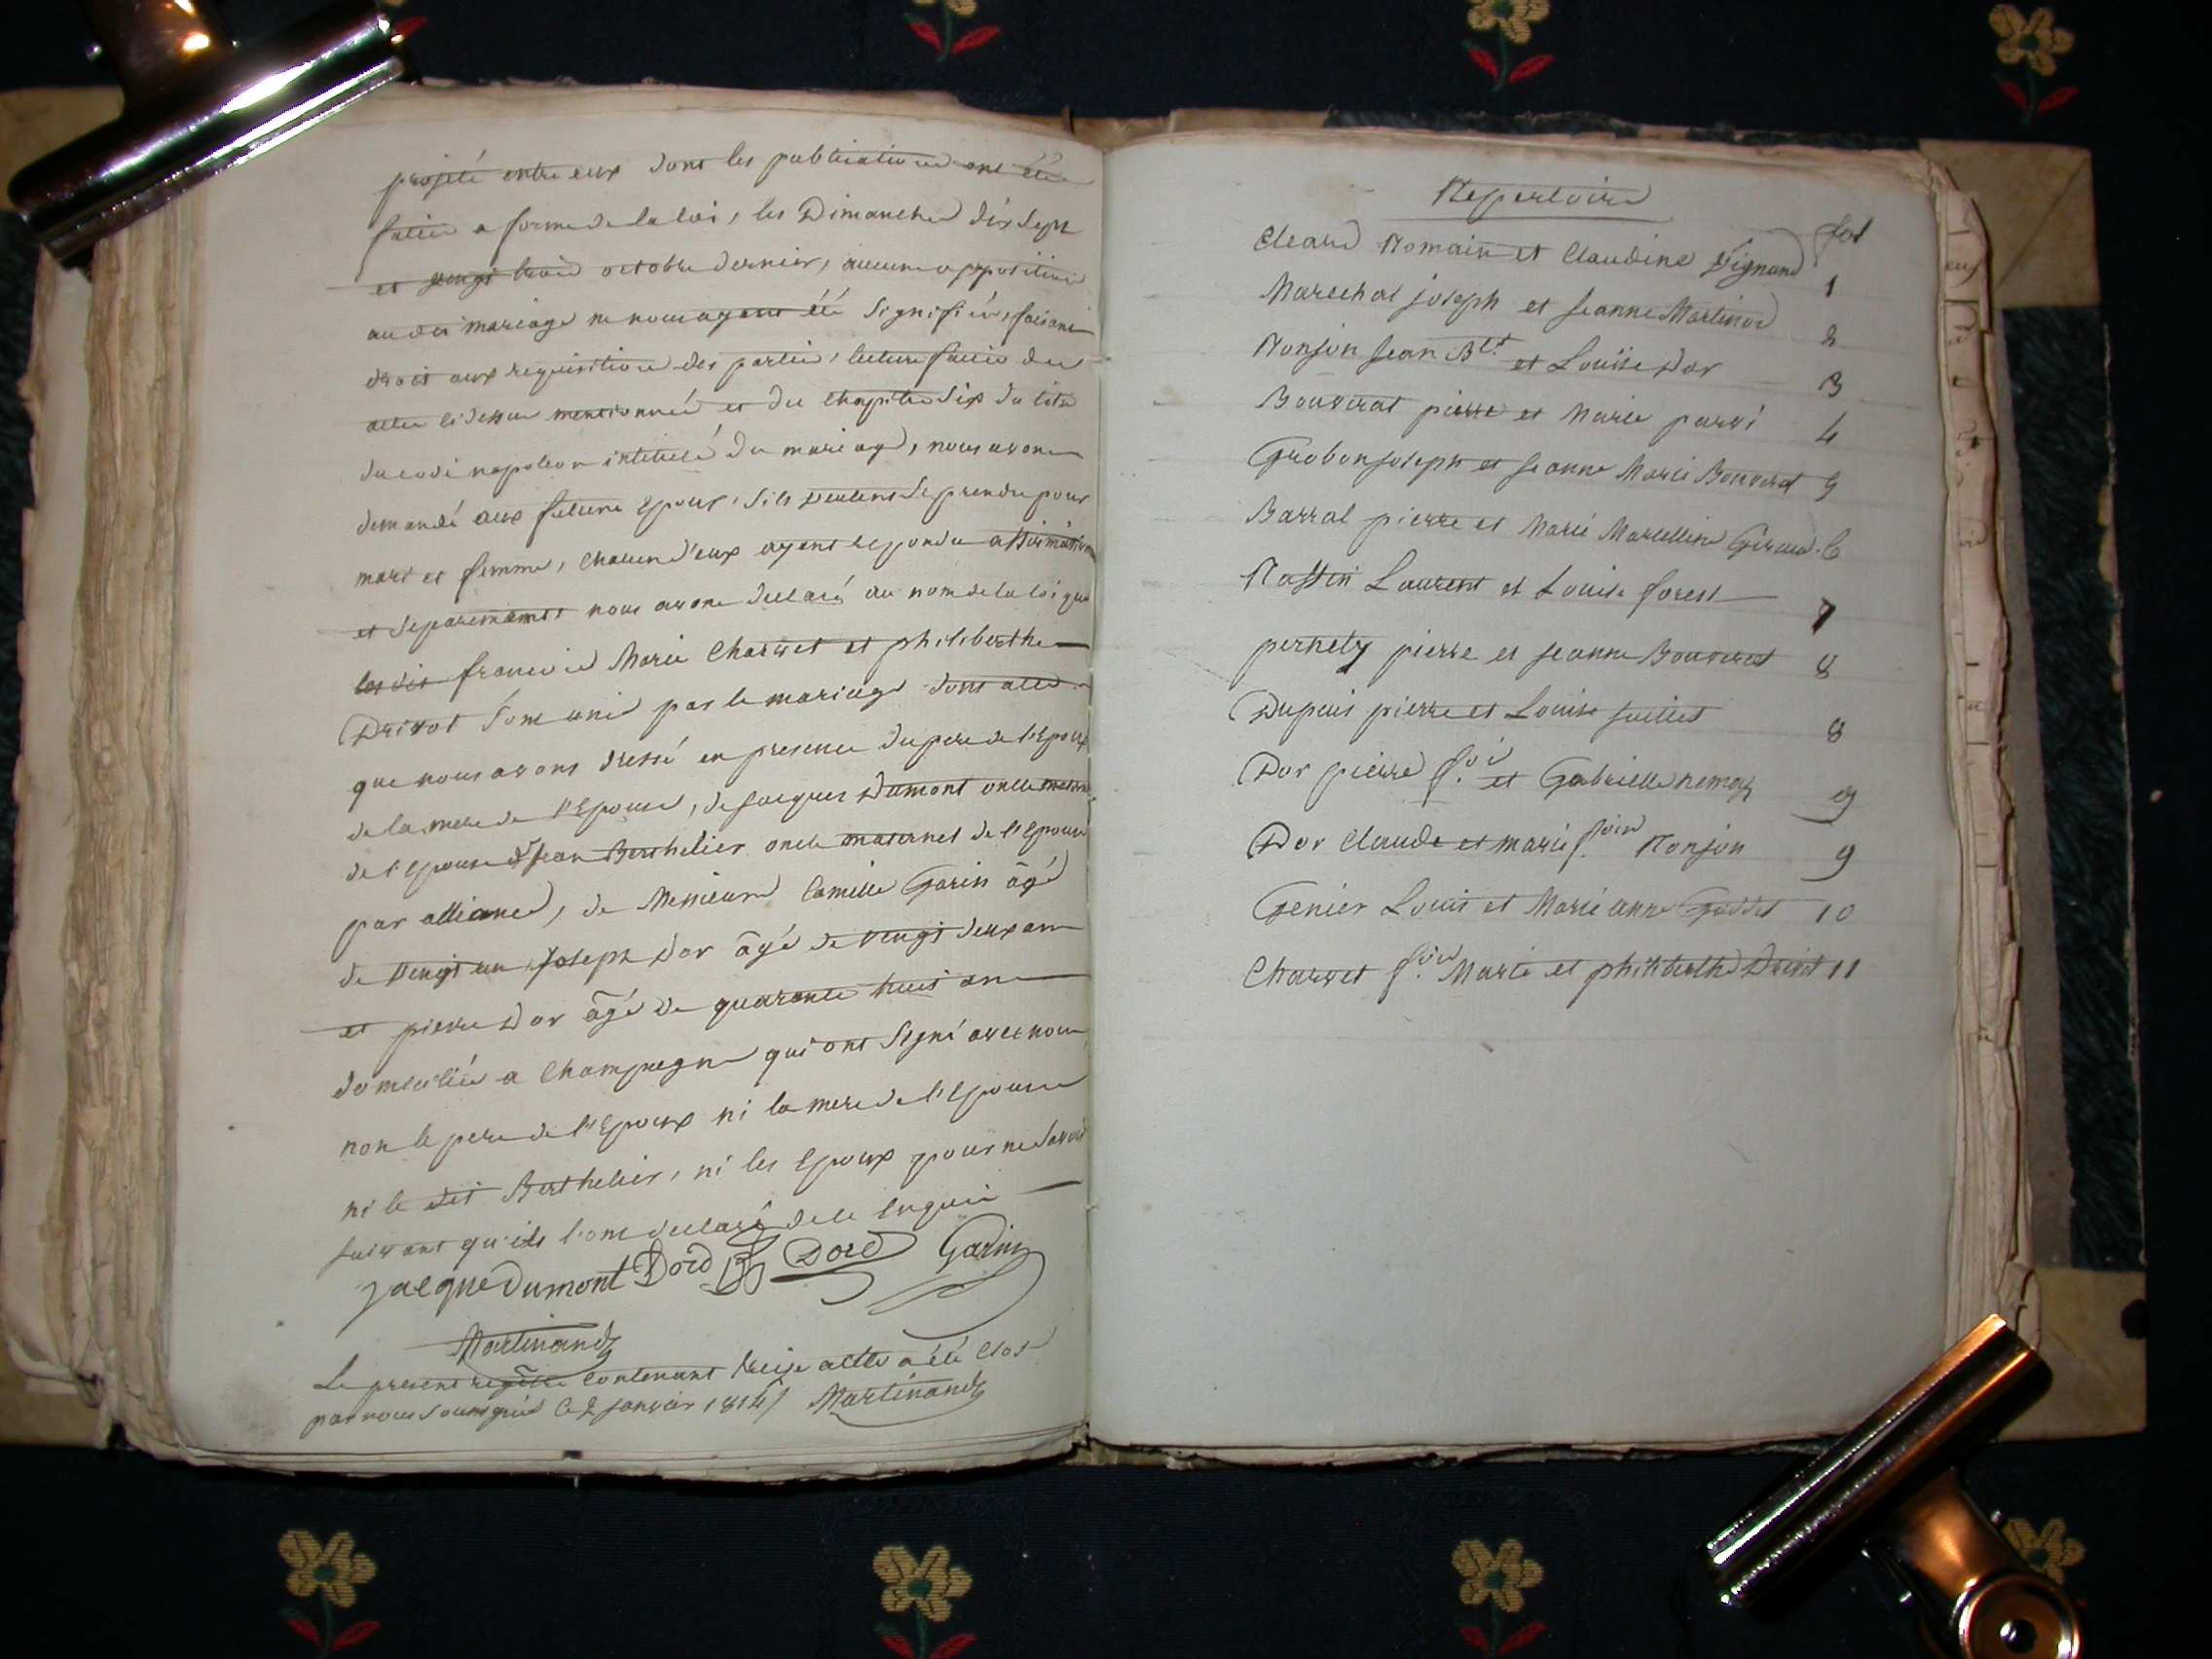 projeté entre eux dont les publications ont été
faites a forme de la loi, les Dimanches dix sept
et vingt trois octobre dernier, aucune opposition
au dit mariage ne nous ayant été signifiée, faisant
droit aux requisitions des parties, lecture faite des
actes ci dessus mentionnés et du chapitre six du titre
du code napoleon intitulé du mariage, nous avons
demandé aux futurs Epoux, s'ils veulent se prendre pour
mari et femme, chacun d'eux ayant repondu affirmativement
et separement nous avons declaré au nom de la loi que
les dits francois Marie Charvet et philiberthe
Drivot sont unis par le mariage dont acte
que nous avons dressé en presence du pere de l'Epoux
de la mere de l'Epouse, de Jacques Dumont oncle maternel
de l'Epouse de Jean Berthelier oncle maternel de l'Epouse
par alliance, de Messieurs Camille Garin âgé
de vingt un Joseph Dor âgé de vingt deux ans
et pierre Dor âgé de quarante huit ans
domiciliés a Champagne qui ont signé avec nous
non le pere de l'Epoux ni la mere de l'Epouse
ni le dit Berthelier, ni les Epoux pour ne savoir
suivant qu'ils l'ont declaré de ce enquis
Jacque Dumont Dord Dord Garin
Martinand
Le present registre contenant treize actes a été clos
par nous soussigné le 2 janvier 1814 Martinand
Repertoire
fol
Cleard Romain et Claudine Vignand 1
Marechal joseph et Jeanne Martinod 2
Monjon Jean Bte et Louise Dor 3
Bouverat pierre et Marie parvi 4
Grobon joseph et Jeanne Marie Bouveret 5
Barral pierre et Marie Marcelline Giraud 6
Massin Laurent et Louise forest 7
pernety pierre et jeanne Bouveret 8
Dupuis pierre et Louise juillet 8
Dor pierre f.ois et Gabrielle nemoz 9
Dor Claude et marie f.oise Monjon 9
Genier Louis et Marie anne Goddet 10
Charvet f.ois Marie et philiberthe Drivot 11